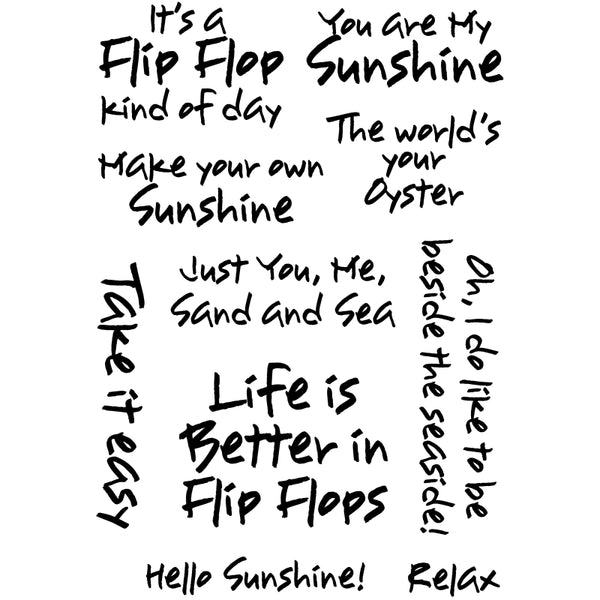 It's a
Flip Flop
kind of day
You Are My
Sunshine
The world's
your
Oyster
Make your own
Sunshine
Just You, Me,
Sand and Sea
Take it easy
Oh, I do like to be
beside the seaside!
Life is
Better in
Flip Flops
Hello Sunshine!
Relax